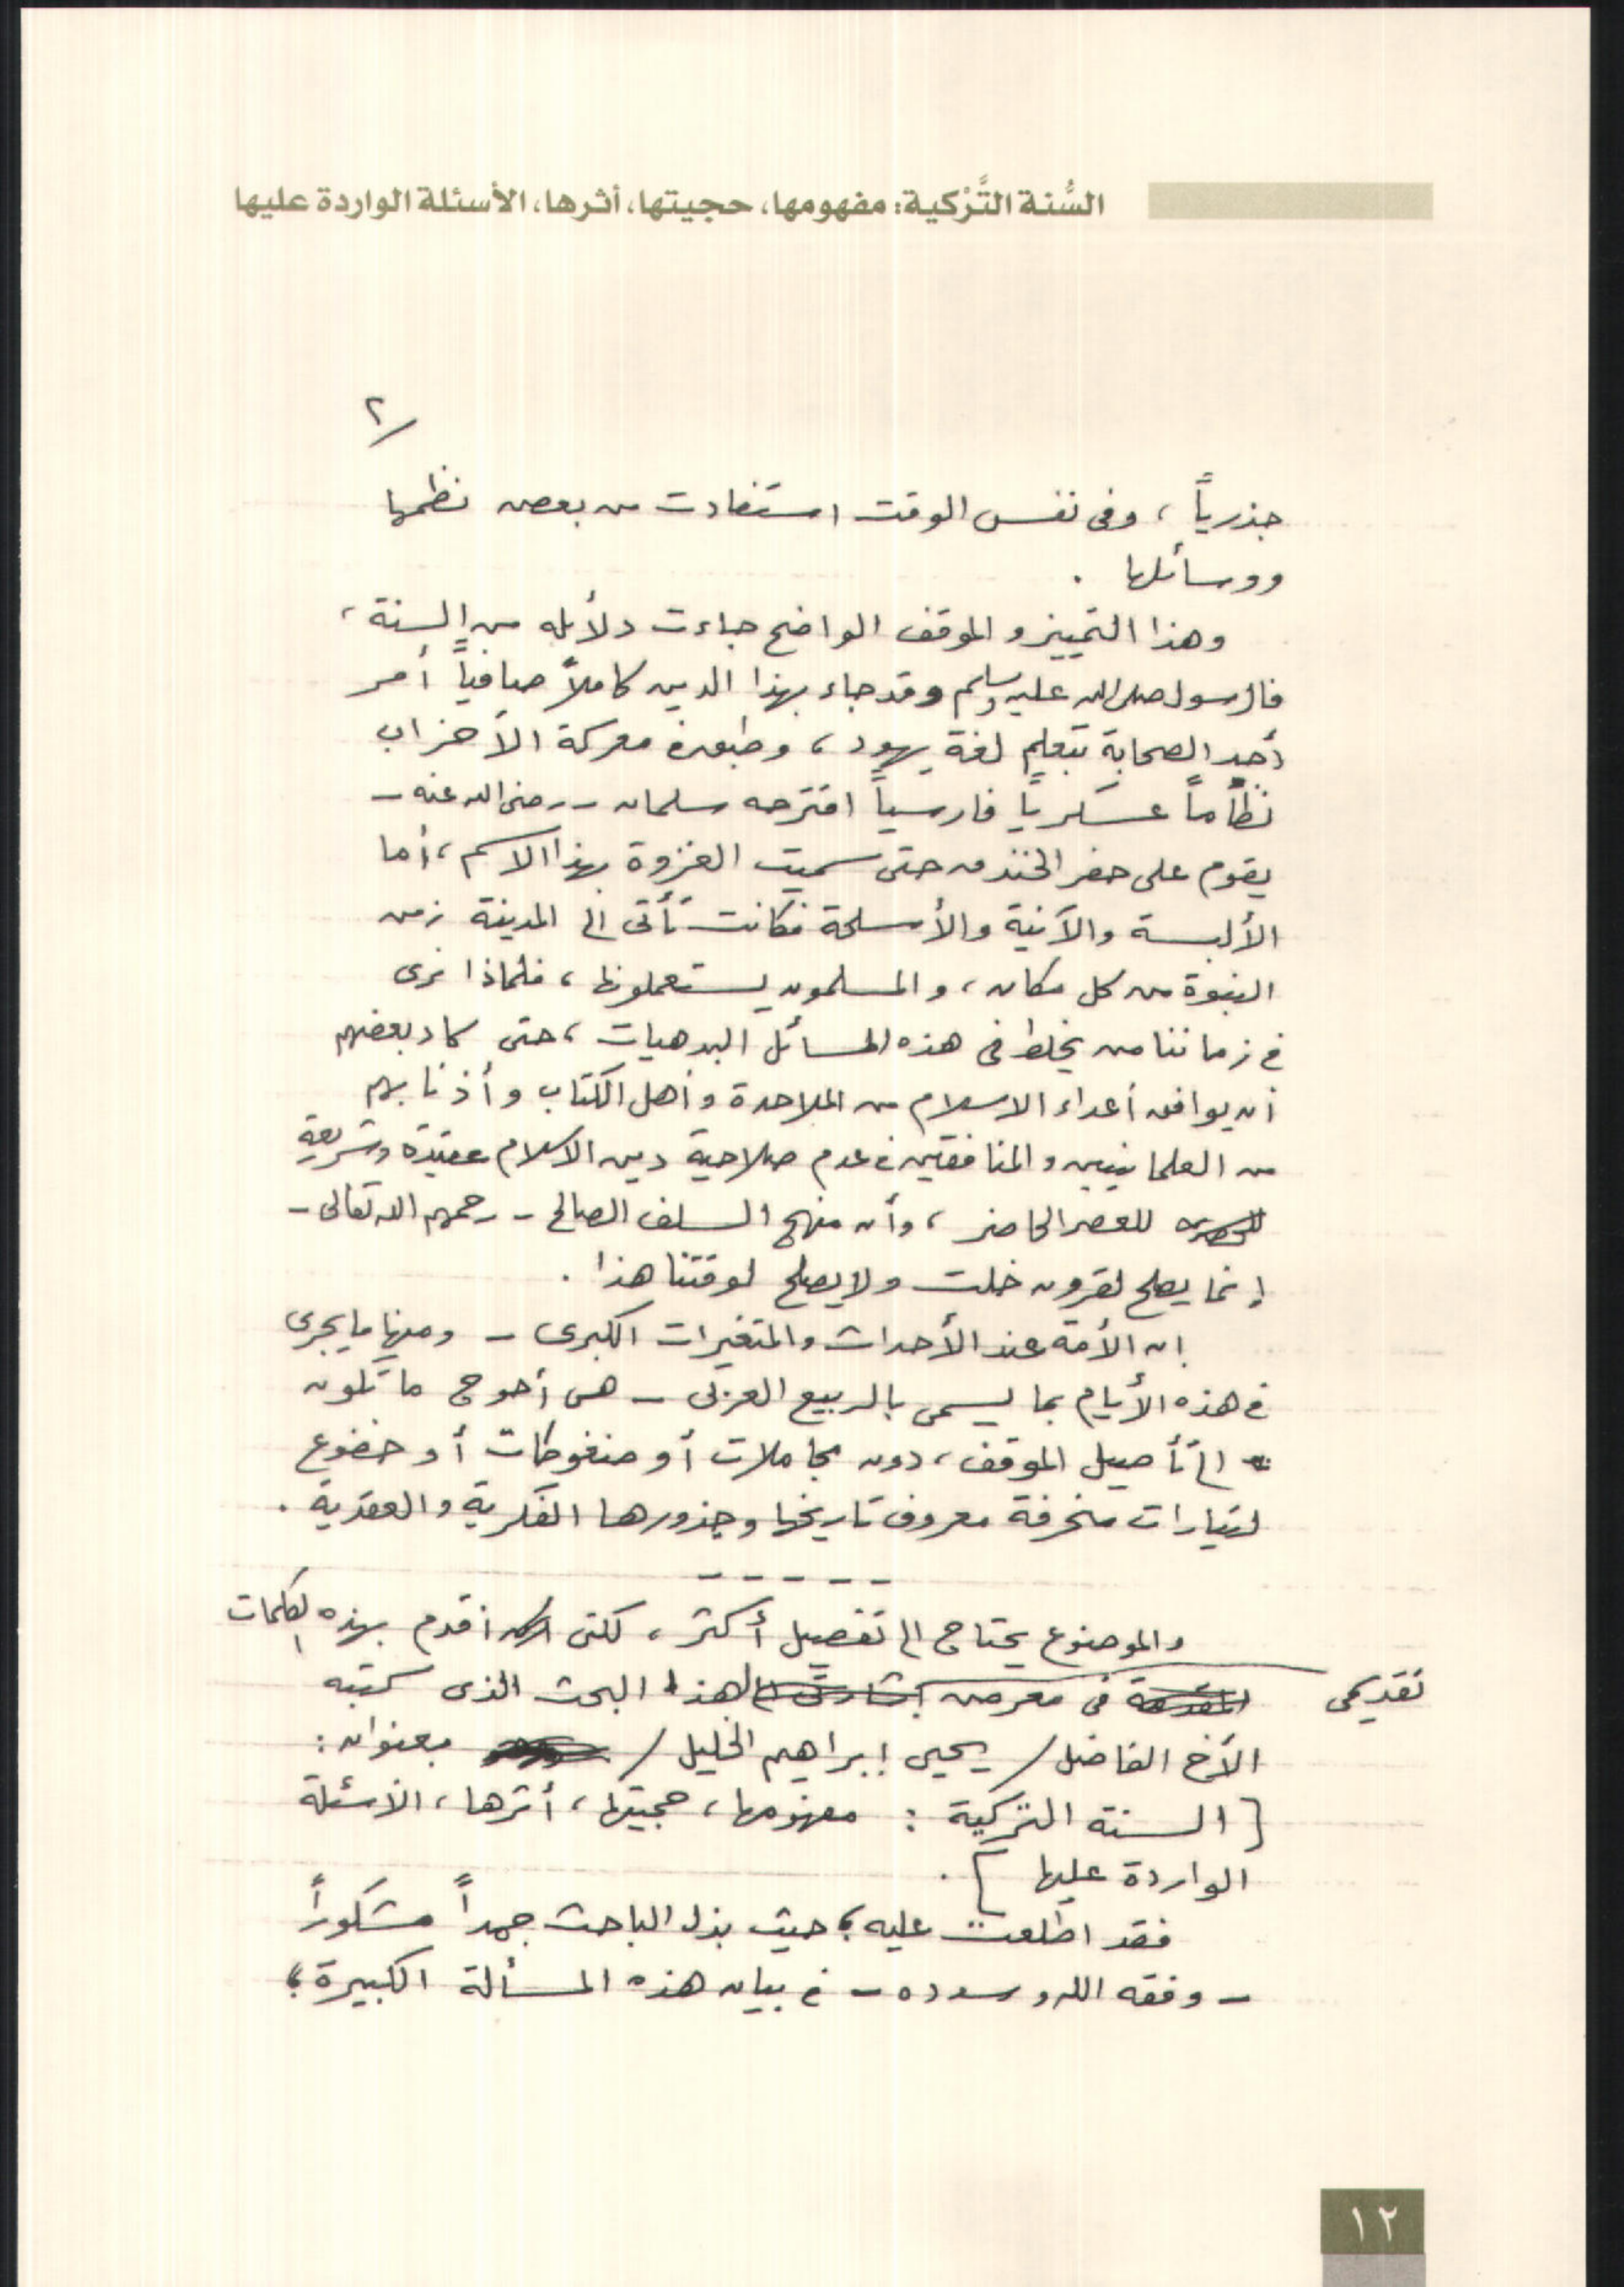 السُّنة التَّرْكية: مفهومها، حجيتها، أثرها، الأسئلة الواردة عليها
٢/
جذرياً ، وفى نفس الوقت استفادت من بعض نظمها
ووسائلها .
وهذا التمييز والموقف الواضح جاءت دلائله من السنة ،
فالرسول صلى الله عليه وسلم وقد جاء بهذا الدين كاملاً صافياً أمر
أحد الصحابة بتعلم لغة يهود ، وطبق فى معركة الأحزاب
نظاماً عسكرياً فارسياً اقترحه سلمان - رضى الله عنه -
يقوم على حفر الخندق حتى سميت الغزوة بهذا الاسم ، أما
الألبسة والآنية والأسلحة فكانت تأتى الى المدينة زمن
النبوة من كل مكان ، والمسلمون يستعملونها ، فلماذا نرى
فى زماننا من يخلط فى هذه المسائل البدهيات ، حتى كاد بعضهم
أن يوافق أعداء الاسلام من الملاحدة وأهل الكتاب وأذنابهم
من العلمانيين والمنافقين فى عدم صلاحية دين الاسلام عقيدة وشريعة
للعصر الحاضر ، وأن منهج السلف الصالح - رحمهم الله تعالى -
إنما يصلح لقرون خلت ولا يصلح لوقتنا هذا .
ان الأمة عند الأحداث والمتغيرات الكبرى - ومنها ما يجرى
فى هذه الأيام بما يسمى بالربيع العربى - هى أحوج ما تكون
الى تأصيل الموقف ، دون مجاملات أو ضغوطات أو خضوع
لتيارات منحرفة معروف تاريخها وجذورها الفكرية والعقدية .
- - - - -
والموضوع يحتاج الى تفصيل أكثر ، لكنى أقدم بهذه الكلمات
فى معرض تقديمى لهذا البحث الذى كتبه
الأخ الفاضل / يحيى إبراهيم الخليل / بعنوان :
[ السنة التركية : مفهومها ، حجيتها ، أثرها ، الأسئلة
الواردة عليها ] .
فقد اطلعت عليه ؛ حيث بذل الباحث جهداً مشكوراً
- وفقه الله وسدده - فى بيان هذه المسألة الكبيرة ؛
١٢